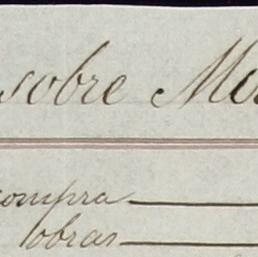 sobre
compra
obras